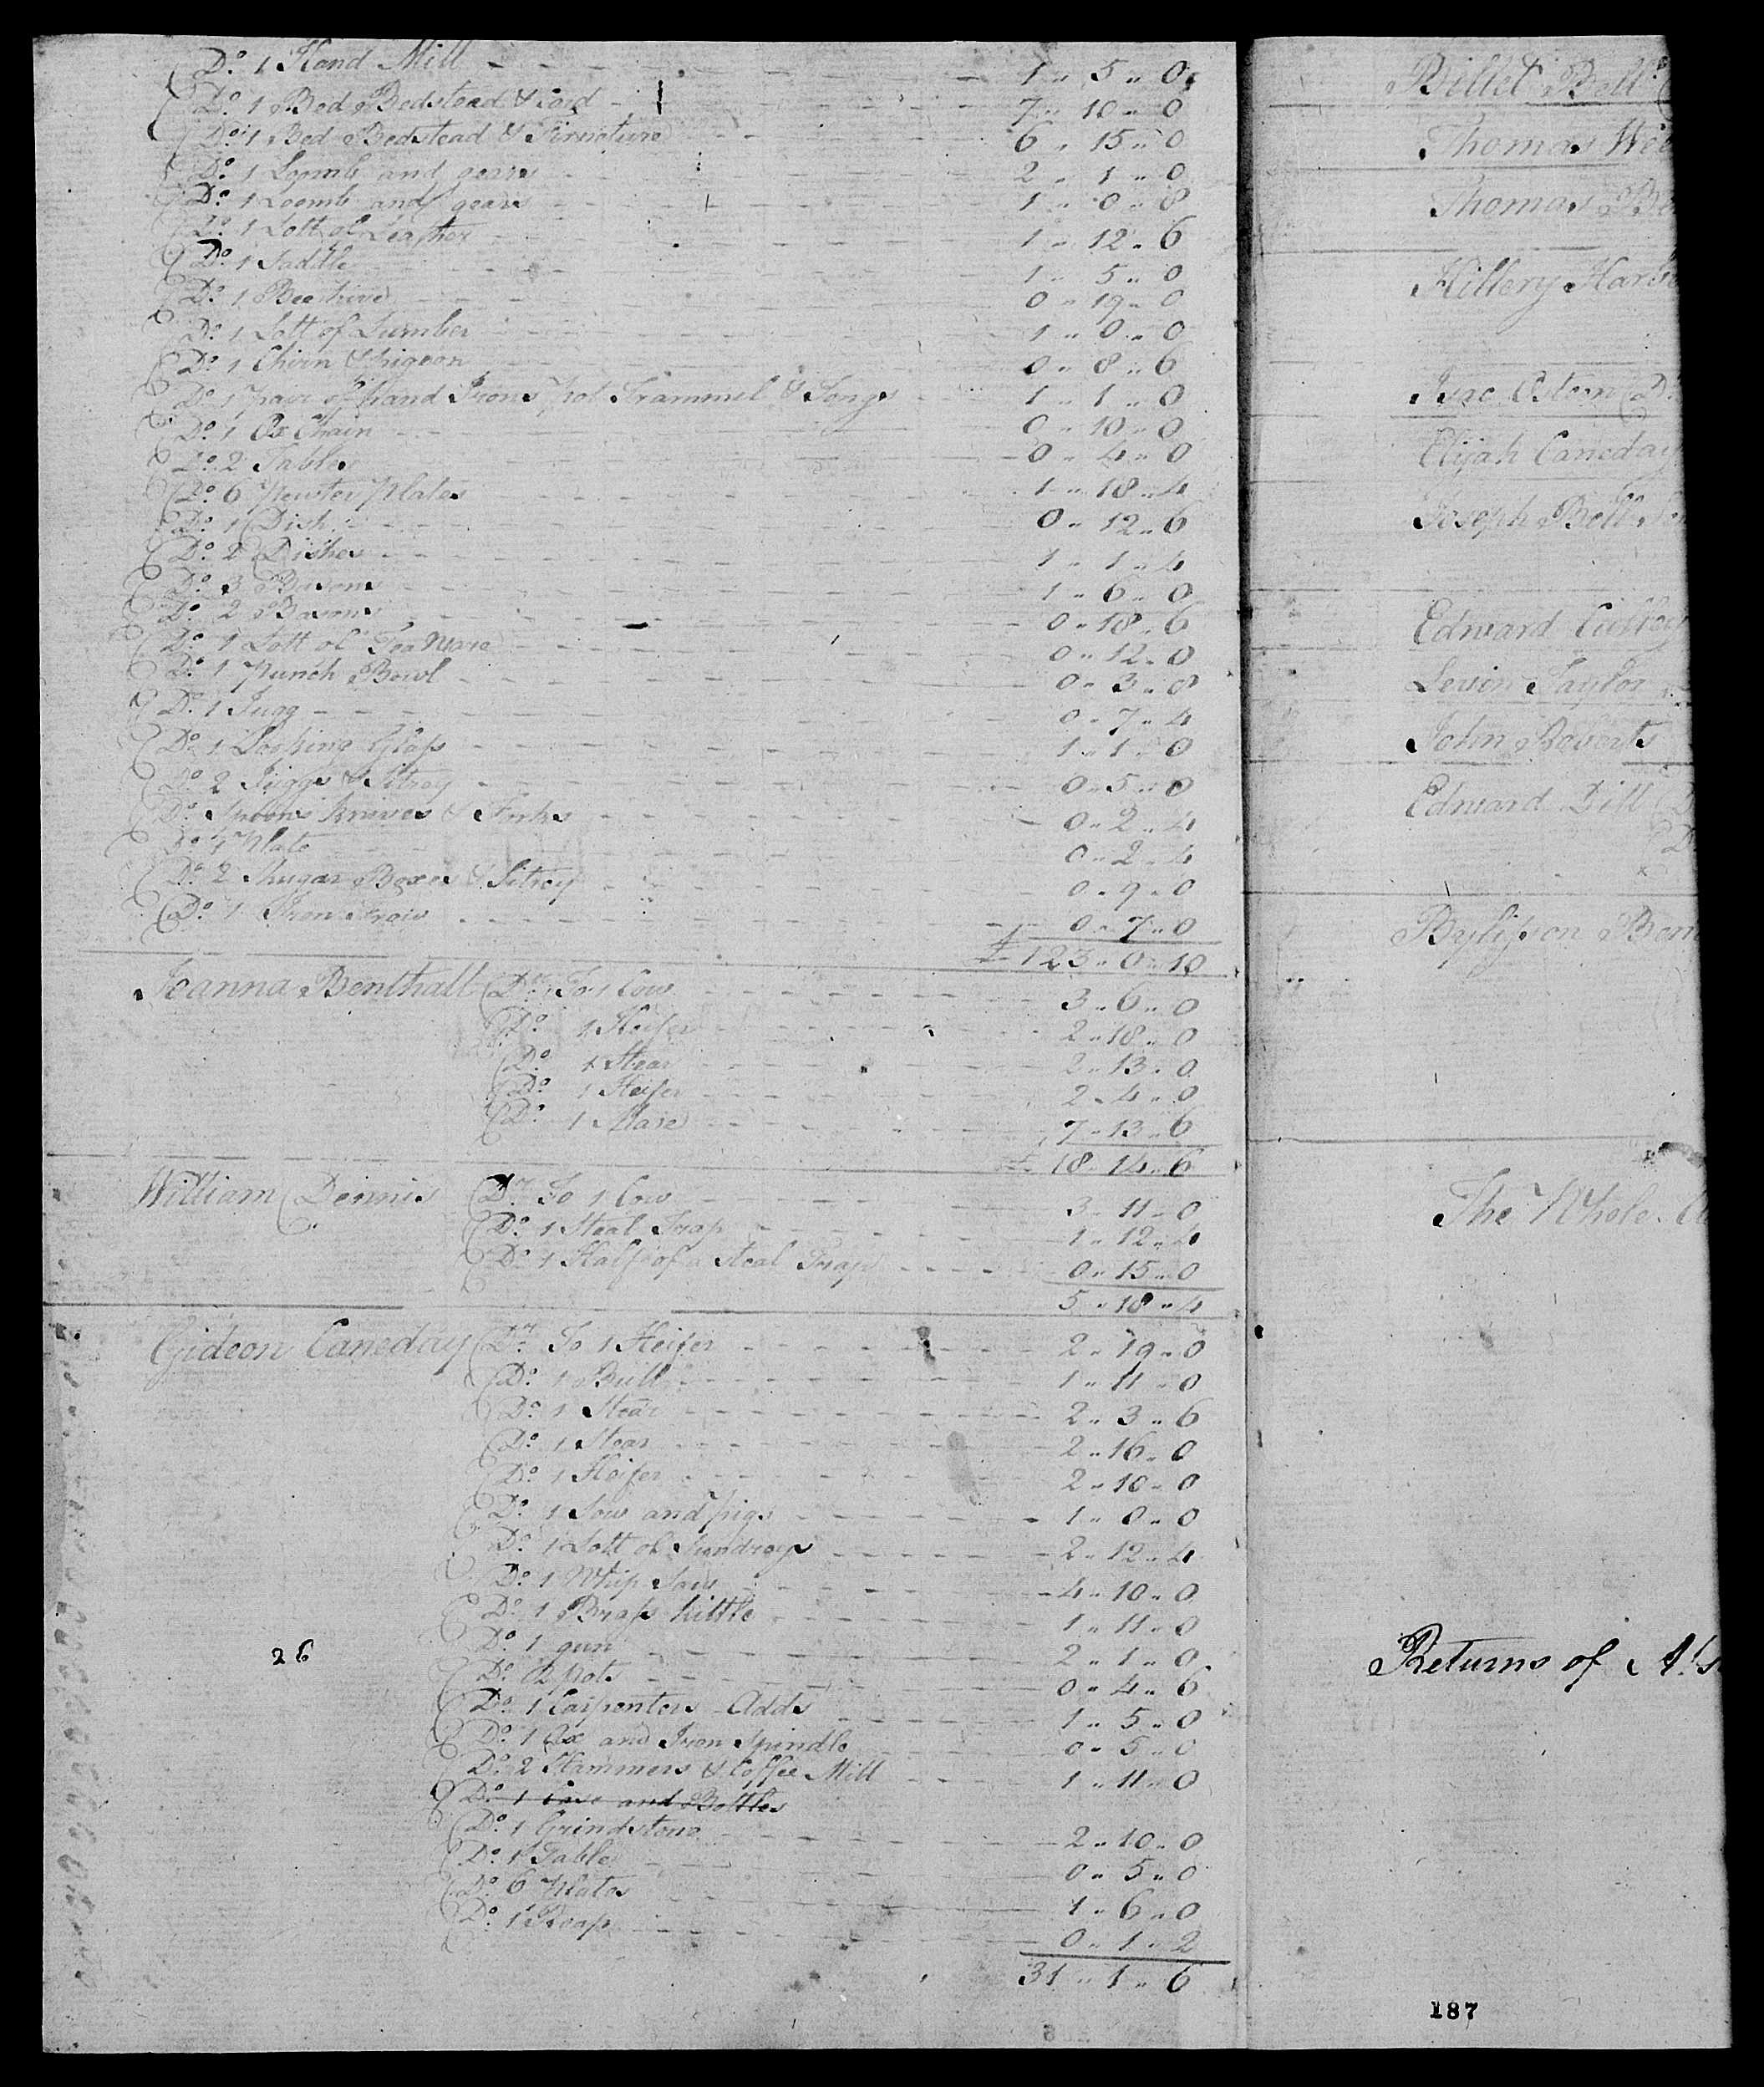 Do. 1 Hand Mill 1 " 5 " 0
Do. 1 Bed Bedstead & Cord 7 " 10 " 0
Do. 1 Bed Bedstead & Firneture 6 " 15 " 0
Do. 1 Loomb and gears 2 " 1 " 0
Do. 1 Loomb and gears 1 " 0 " 8
Do. 1 Lott of Leather 1 " 12 " 6
Do. 1 Saddle 1 " 5 " 0
Do. 1 Bee hive 0 " 19 " 0
Do. 1 Lott of Lumber 1 " 0 " 0
Do. 1 Chirn & pigeon 0 " 8 " 6
Do. 1 pair of hand Irons pot Trammel & Tongs 1 " 1 " 0
Do. 1 Ox Chain 0 " 10 " 0
Do. 2 Tables 0 " 4 " 0
Do. 6 Pewter Plates 1 " 18 " 4
Do. 1 Dish 0 " 12 " 6
Do. 2 Dishes 1 " 1 " 4
Do. 3 Basons 1 " 6 " 0
Do. 2 Basons 0 " 18 " 6
Do. 1 Lott of Tea Ware 0 " 12 " 0
Do. 1 Punch Bowl 0 " 3 " 8
Do. 1 Jugg 0 " 7 " 4
Do. 1 Looking Glass 1 " 1 " 0
Do. 2 Juggs & 0 " 5 " 0
Do. Spoons knives & Forks 0 " 2 " 4
Do. 1 Plate 0 " 2 " 4
Do. 2 Shugar Boxes & 0 " 9 " 0
Do. 1 Iron 0 " 7 " 0
£ 123 " 0 " 10
Joanna Benthall Dr. To 1 Cow 3 " 6 " 0
Do. 1 Heifer 2 " 18 " 0
Do. 1 Stear 2 " 13 " 0
Do. 1 Heifer 2 " 4 " 0
Do. 1 Mare 7 " 13 " 6
£ 18 " 14 " 6
William Dennis Dr. To 1 Cow 3 " 11 " 0
Do. 1 Steal Trap 1 " 12 " 4
Do. 1 Half of a Steal Trap 0 " 15 " 0
5 " 18 " 4
Gideon Caneday Dr. To 1 Heifer 2 " 19 " 0
Do. 1 Bull 1 " 11 " 0
Do. 1 Stear 2 " 3 " 6
Do. 1 Stear 2 " 16 " 0
Do. 1 Heifer 2 " 10 " 0
Do. 1 Sow and pigs 1 " 0 " 0
Do. 1 Lott of Sundreys 2 " 12 " 4
Do. 1 Whip Saw 4 " 10 " 0
Do. 1 Brass kittle 1 " 11 " 0
Do. 1 gun 2 " 1 " 0
Do. 2 pots 0 " 4 " 6
Do. 1 Carpenters Adds 1 " 5 " 0
Do. 1 Ax and Iron Spindle 0 " 5 " 0
Do. 2 Hammers & Coffee Mill 1 " 11 " 0
Do. 1 Case and Bottles
Do. 1 Grindstone 2 " 10 " 0
Do. 1 Table 0 " 5 " 0
Do. 6 Plates 1 " 6 " 0
Do. 1 Reap 0 " 1 " 2
31 " 1 " 6
26
Billet Bell
Thomas
Thomas
Hillery
Isac
Elijah Caneday
Joseph Bell
Edward
Levin Taylor
John Roberts
Edward Dill
The Whole
Returns of
187